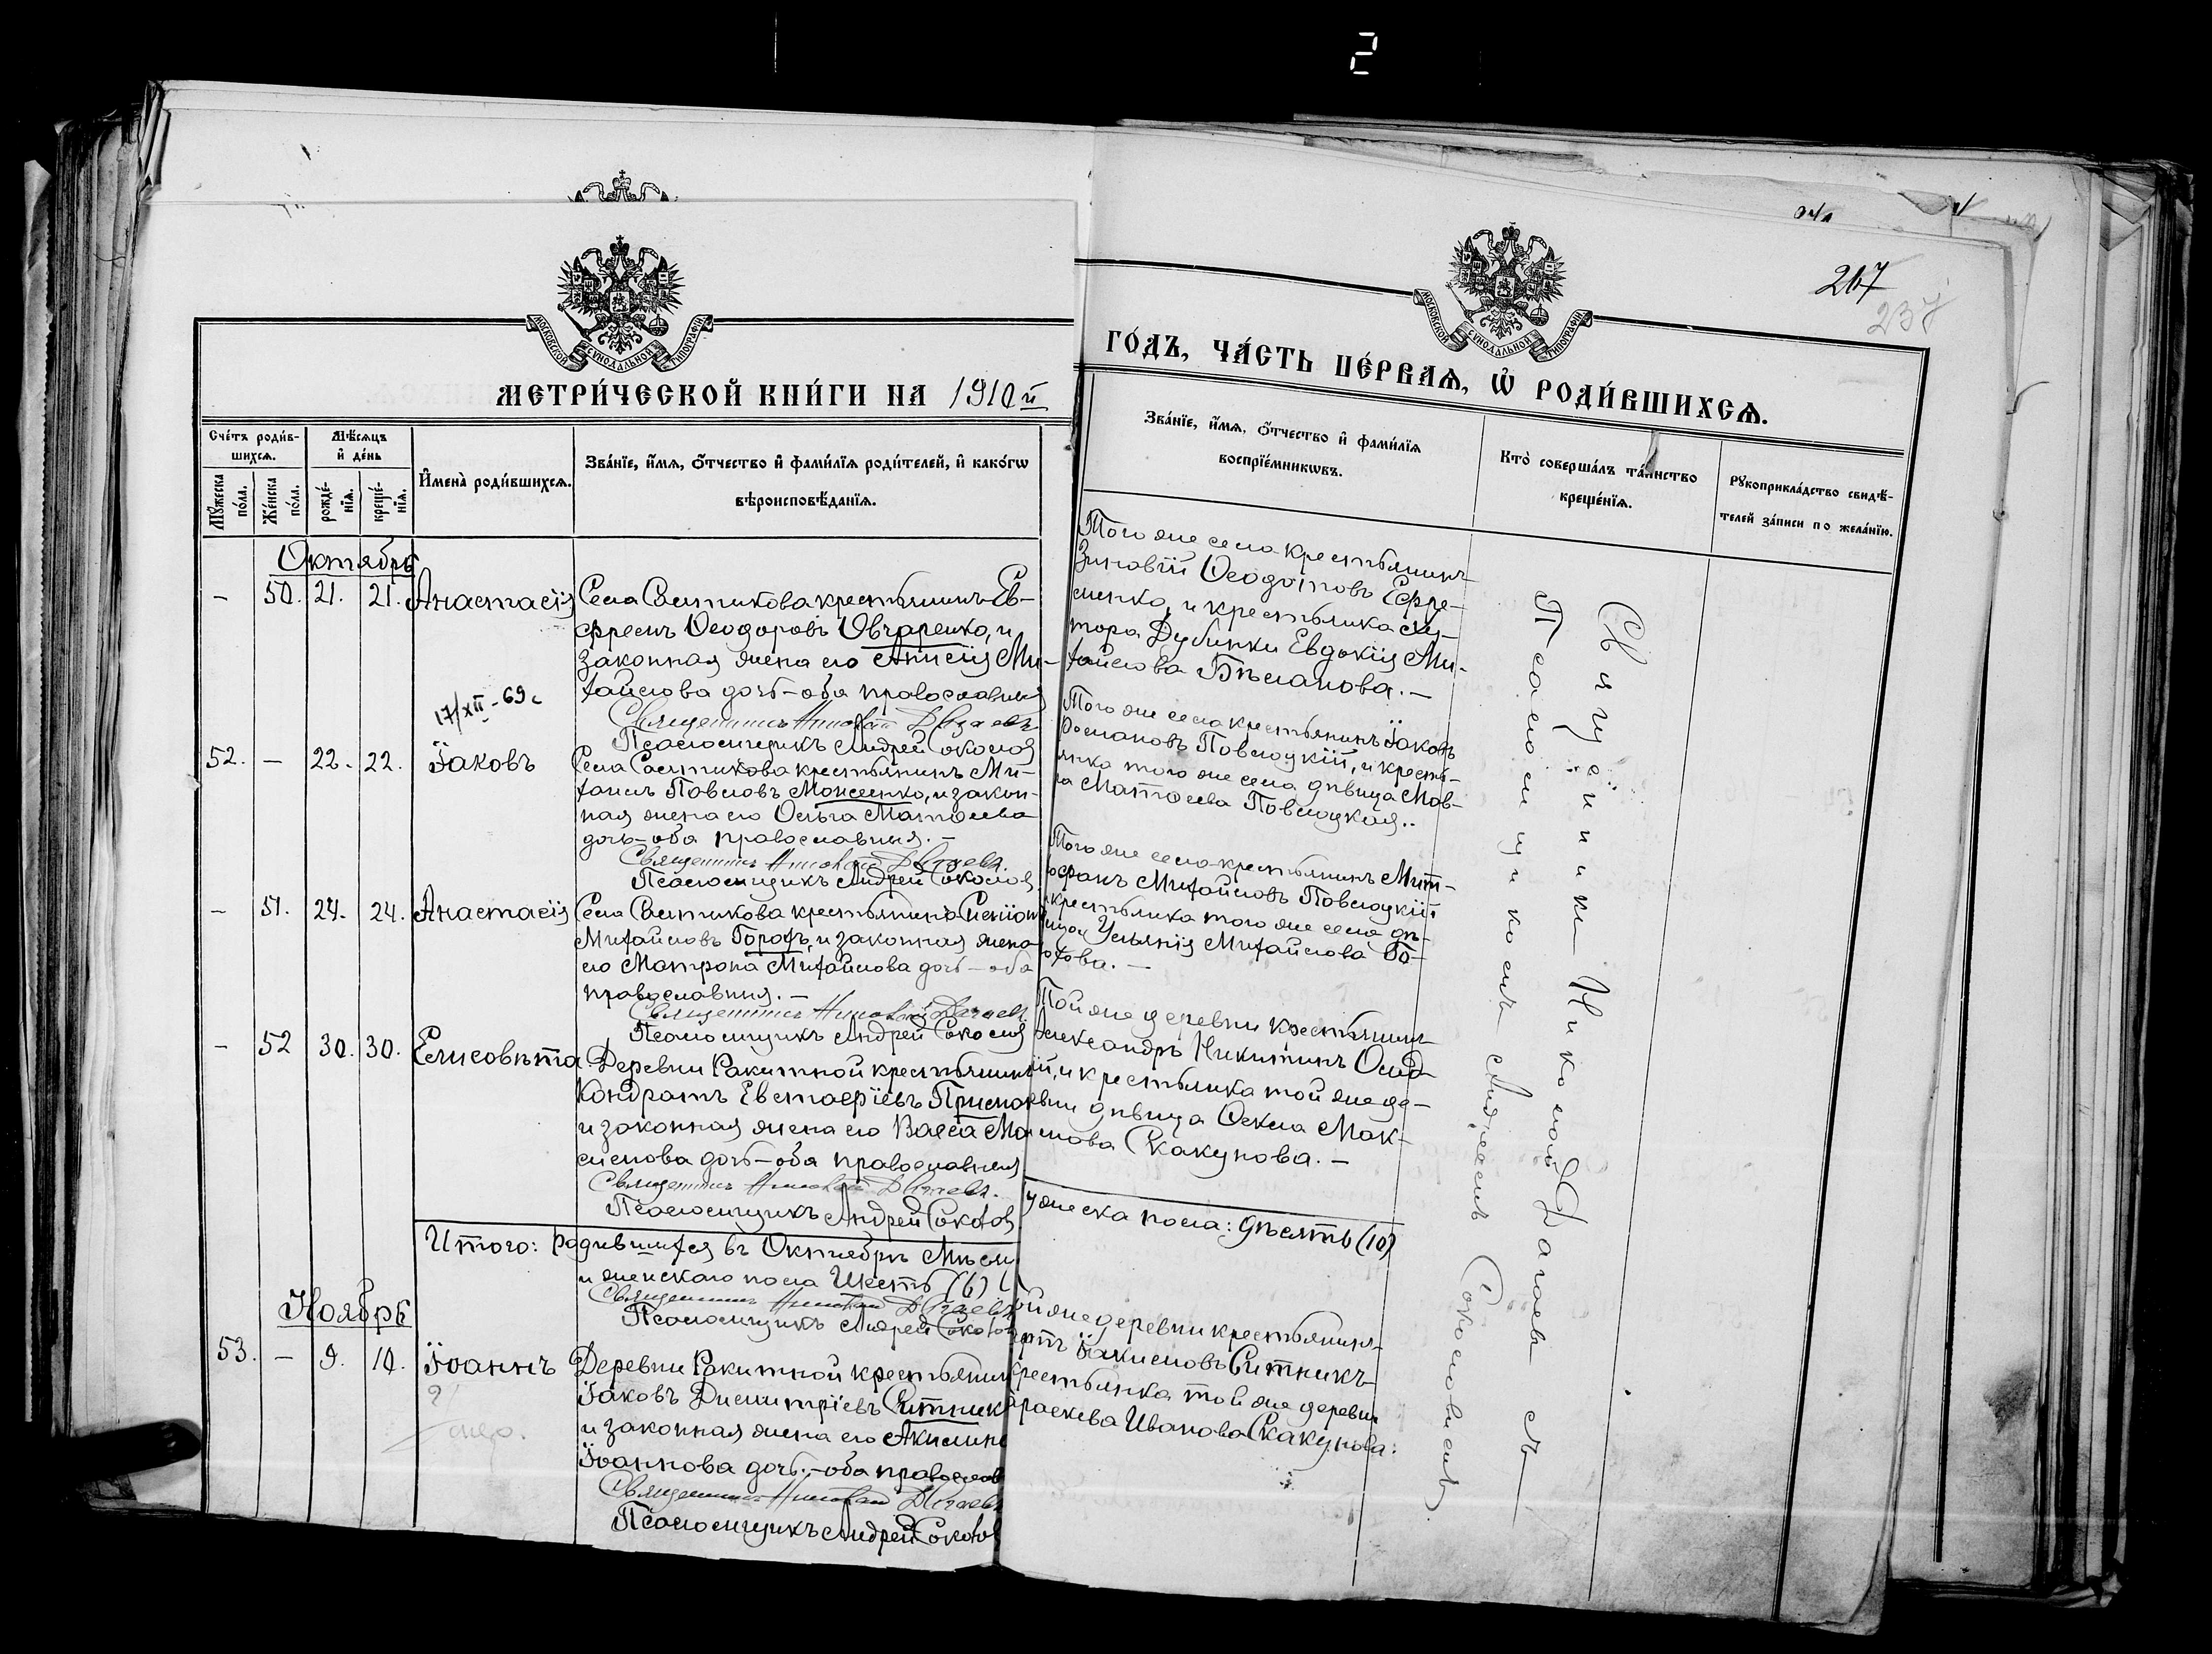 2
МОСКОВСКОЙ СУНОДАЛЬНОЙ ТИПОГРАФІИ
МОСКОВСКОЙ СУНОДАЛЬНОЙ ТИПОГРАФІИ
267
237
МЕТРИ́ЧЕСКОЙ КНИ́ГИ НА 1910 й
ГО́ДЪ, ЧА́СТЬ ПЕ́РВАѦ, Ѡ РОДИ́ВШИХСѦ.
Сче́тъ роди́в-
шихсѧ.
Мꙋ́жеска по́ла.
Же́нска по́ла.
Мѣ́сѧцъ
и де́нь
рожде́-
нїѧ.
креще́-
нїѧ.
И́мена̀ роди́вшихсѧ.
Зва́нїе, и́мѧ, ѻ́тчество и фами́лїѧ роди́телей, и како́гѡ
вѣроисповѣ́данїѧ.
Зва́нїе, и́мѧ, ѻ́тчество и фами́лїѧ
воспрїе́мникѡвъ.
Кто̀ соверша́лъ та́инство
креще́нїѧ.
Рꙋкоприкла́дство свидѣ́-
телей за́писи по жела́нїю.
Октябрь
– 50. 21. 21. Анастасія
Села Сытникова крестьянинъ Ев-
фремъ Ѳеодоровъ Овчаренко, и
законная жена его Анисія Ми-
хайлова дочь – оба православныя
Священникъ Николай
Псаломщикъ Андрей Соколов
Того же села крестьянинъ
Зиновій Ѳеодотовъ Ефре-
менко, и крестьянка ху-
тора Дубинки Евдокія Ми-
хайлова Бѣланова. –
17/XII - 69 г
52. – 22. 22. Іаковъ
Села Сытникова крестьянинъ Ми-
хаилъ Павловъ Моисеенко, и закон-
ная жена его Ольга Матѳеева
дочь – оба православныя. –
Священникъ Николай
Псаломщикъ Андрей Соколов
Того же села крестьянинъ Іаковъ
Романовъ Повлоцкій, и кресть-
янка того же села дѣвица Мав-
ра Матѳеева Повлоцкая..
– 51. 24. 24. Анастасія
Села Сытникова крестьянинъ Симеонъ
Михайловъ Горохъ, и законная жена
его Матрона Михайлова дочь – оба
православныя. –
Священникъ Николай
Псаломщикъ Андрей Соколов
Того же села крестьянинъ Мит-
рофанъ Михайловъ Повлоцкій
и крестьянка того же села дѣ-
вица Ульянія Михайлова Го-
рохова. –
– 52 30. 30. Елисавѣта
Деревни Ракитной крестьянинъ
Кондратъ Евстафіевъ
и законная жена его Васса Ма
симова дочь – оба православныя
Священникъ Николай
Псаломщикъ Андрей Соколов
Той же деревни крестьянинъ
Александръ Никитинъ
и крестьянка той же де-
ревни дѣвица Ѳекла Мак-
симова Скакунова. –
Итого: родившихся въ Октябрѣ Мѣсяц
ужеска пола: дѣсять (10)
и женскаго пола Шесть (6)
Священникъ Николай
Псаломщикъ Андрей Соколов
Ноябрь
53. – 9. 10. Іоаннъ
Деревни Ракитной крестьянин
Іаковъ Димитріевъ Ситник
и законная жена его Акилина
Іоаннова дочь. – оба православ
Священникъ Николай
Псаломщикъ Андрей Соколов
ой же деревни крестьянинъ
Іакимовъ Ситникъ
крестьянка той же деревни
Параскева Иванова Скакунова:
Священникъ Николай
Псаломщикомъ Андреемъ Соколовымъ.